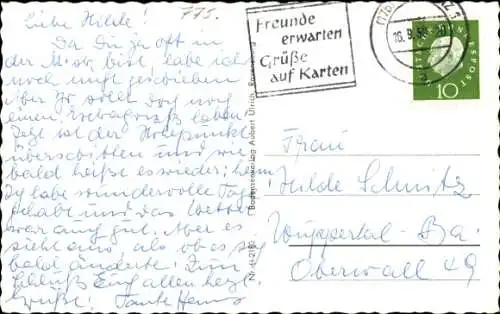 Liebe Hilde! 775.
Da Du ja oft in
der M. str. bist, habe ich
noch nicht geschrieben
aber Ihr sollt doch noch
einen haben.
Jetzt ist der Höhepunkt
überschritten und wie
bald heißt es wieder: heim
Ich habe wundervolle Tage
gehabt und das Wetter
war auch gut. Aber es
sieht aus als ob es s.
bald änderte. Zum
Schluß Euch allen herzl.
Grüße! Tante
Freunde
erwarten
Grüße
auf Karten
16.9.
DEUTSCHE BUNDESPOST
10
Frau
Hilde Schmitz
Wuppertal-Ba.
Oberwall 49
Bodenseeverlag